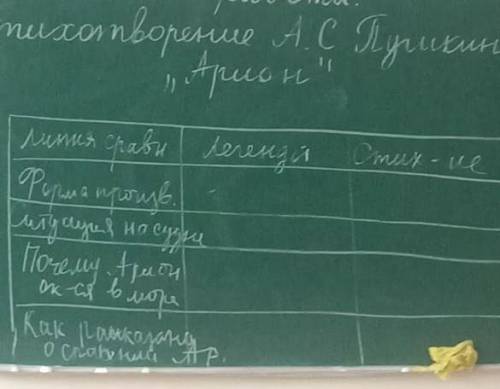 работы.
тихотворение А.С Пушкин
„Арион"
линия сравн Легенда Стих-ие
Форма произв. -
итуация на судне
Почему Арион
ок-ся в море
Как рассказано
о спасении Ар.